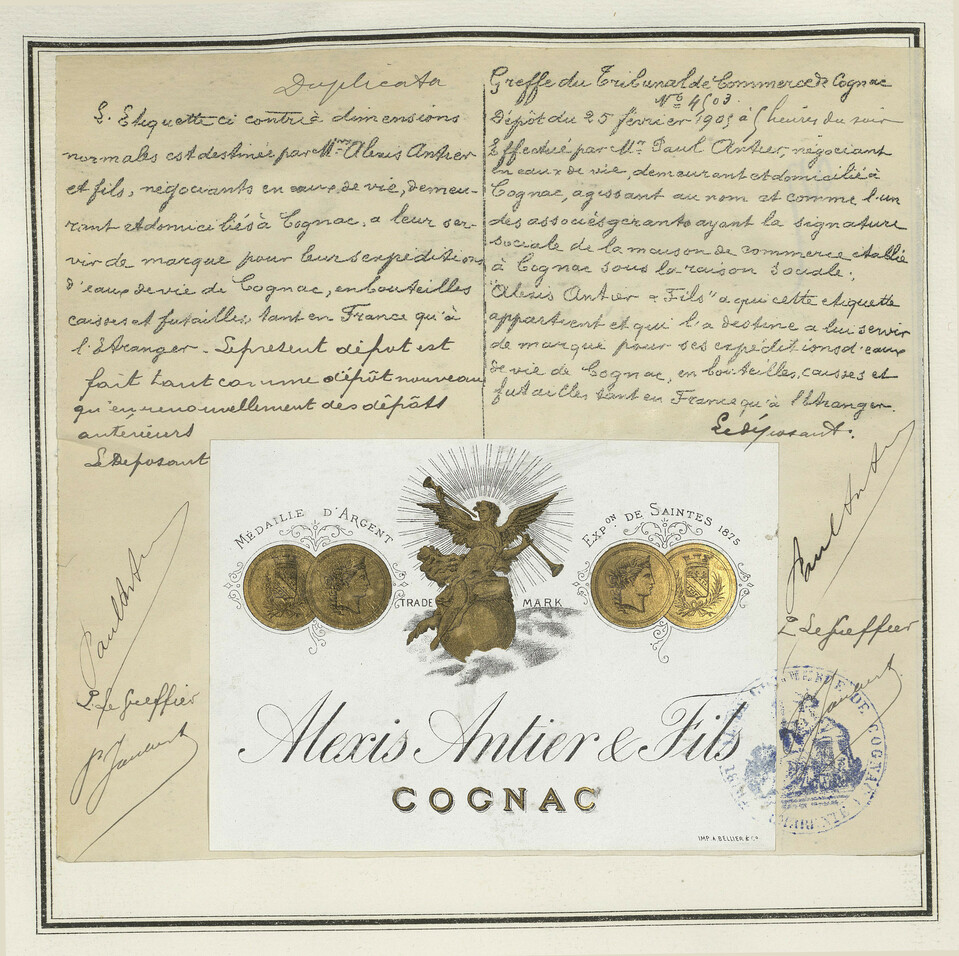 Duplicata
L'Etiquette ci contre dimensions
normales est destinée par Mrs Alexis Antier
et fils, négociants en eaux de vie, demeu-
rant et domiciliés à Cognac, a leur ser-
vir de marque pour leurs expéditions
d'eaux de vie de Cognac, en bouteilles
caisses et futailles, tant en France qu'à
l'Etranger. Le présent dépôt est
fait tant comme dépôt nouveau
qu'en renouvellement des dépôts
antérieurs
Le Deposant
Paul Antier
P. Le Greffier
Greffe du Tribunal de Commerce de Cognac
No 4503.
Dépôt du 25 février 1905 à 5 heures du soir
Effectué par Mr Paul Antier, négociant
en eaux de vie, demeurant et domicilié à
Cognac, agissant au nom et comme l'un
des associés gerants ayant la signature
sociale de la maison de commerce etablie
à Cognac sous la raison sociale:
"Alexis Antier & Fils" a qui cette etiquette
appartient et qui l'a destine a lui servir
de marque pour ses expéditions d'eaux
de vie de Cognac, en bouteilles, caisses et
futailles tant en France qu'à l'Etranger.
Le déposant:
Paul Antier
P. Le Greffier
MÉDAILLE D'ARGENT
EXPON DE SAINTES 1875
TRADE MARK
Alexis Antier & Fils
COGNAC
IMP. A. BELLIER & Co
COMMERCE DE COGNAC